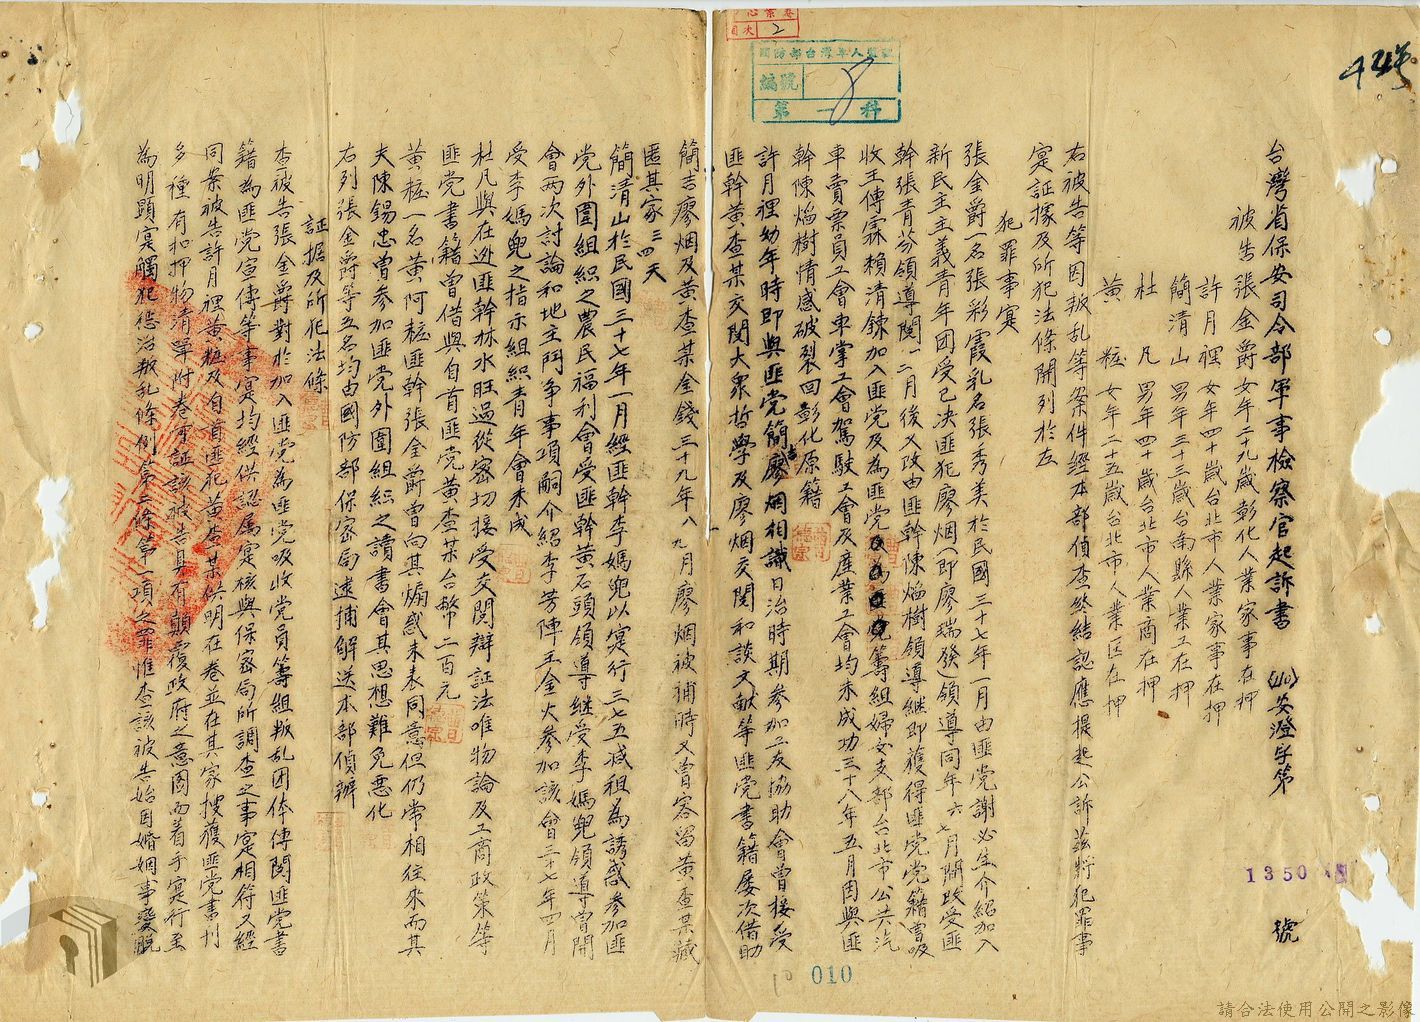 424
卷
目次 2
國防部台灣軍人監獄
編號 8
第一科
台灣省保安司令部軍事檢察官起訴書 (40)安澄字第 1350 號
被告張金爵女年二十九歲彰化人業家事在押
許月裡女年四十歲台北市人業家事在押
簡清山男年三十三歲台南縣人業工在押
杜 凡男年四十歲台北市人業商在押
黃 䊵女年二十五歲台北市人業医在押
右被告等因叛乱等案件經本部偵查終結認應提起公訴茲將犯罪事
寔証據及所犯法條開列於左
犯罪事寔
張金爵一名張彩霞乳名張秀美於民國三十七年一月由匪党謝必生介紹加入
新民主主義青年团受已決匪犯廖烟(即廖瑞發)領導同年六七月間改受匪
幹張青芬領導閱一二月後又改由匪幹陳焰樹領導継即獲得匪党党籍曾吸
收王傳霖賴清鍊加入匪党及為匪党籌組婦女支部台北市公共汽
車賣票員工會車掌工會駕駛工會及產業工會均未成功三十八年五月因與匪
幹陳焰樹情感破裂回彰化原籍
許月裡幼年時即與匪党簡吉廖烟相識日治時期參加工友協助會曾接受
匪幹黃查某交閱大衆哲學及廖烟交閱和談文献等匪党書籍屡次借助
簡吉廖烟及黃查某金錢三十九年八九月廖烟被捕時又曾容留黃查某藏
匿其家三四天
簡清山於民國三十七年一月經匪幹李媽兜以寔行三七五减租為誘惑参加匪
党外圍組織之農民福利會受匪幹黃石頭領導継受李媽兜領導曾開
會两次討論和地主鬥争事項嗣介紹李芳陣王金火參加該會三十七年四月
受李媽兜之指示組織青年會未成
杜凡與在逃匪幹林水旺過從密切接受交閱辯証法唯物論及工商政策等
匪党書籍曾借與自首匪党黃查某台幣二百元
黃䊵一名黃阿䊵匪幹張金爵曾向其煽惑未表同意但仍常相往來而其
夫陳錫忠曾參加匪党外圍組織之讀書會其思想難免惡化
右列張金爵等五名均由國防部保密局逮捕解送本部偵辦
証据及所犯法條
查被告張金爵對於加入匪党為匪党吸收党員籌組叛乱团体傳閱匪党書
籍為匪党宣傳等事寔均經供認属寔核與保密局所調查之事寔相符又經
同案被告許月裡黃䊵及自首匪犯黃查某供明在卷並在其家搜獲匪党書刊
多種有扣押物清單附卷可証該被告具有顛覆政府之意圖而着手寔行至
為明顕寔觸犯懲治叛乱條例第二條第一項之罪惟查該被告始因婚姻事變脫
10
010
請合法使用公開之影像